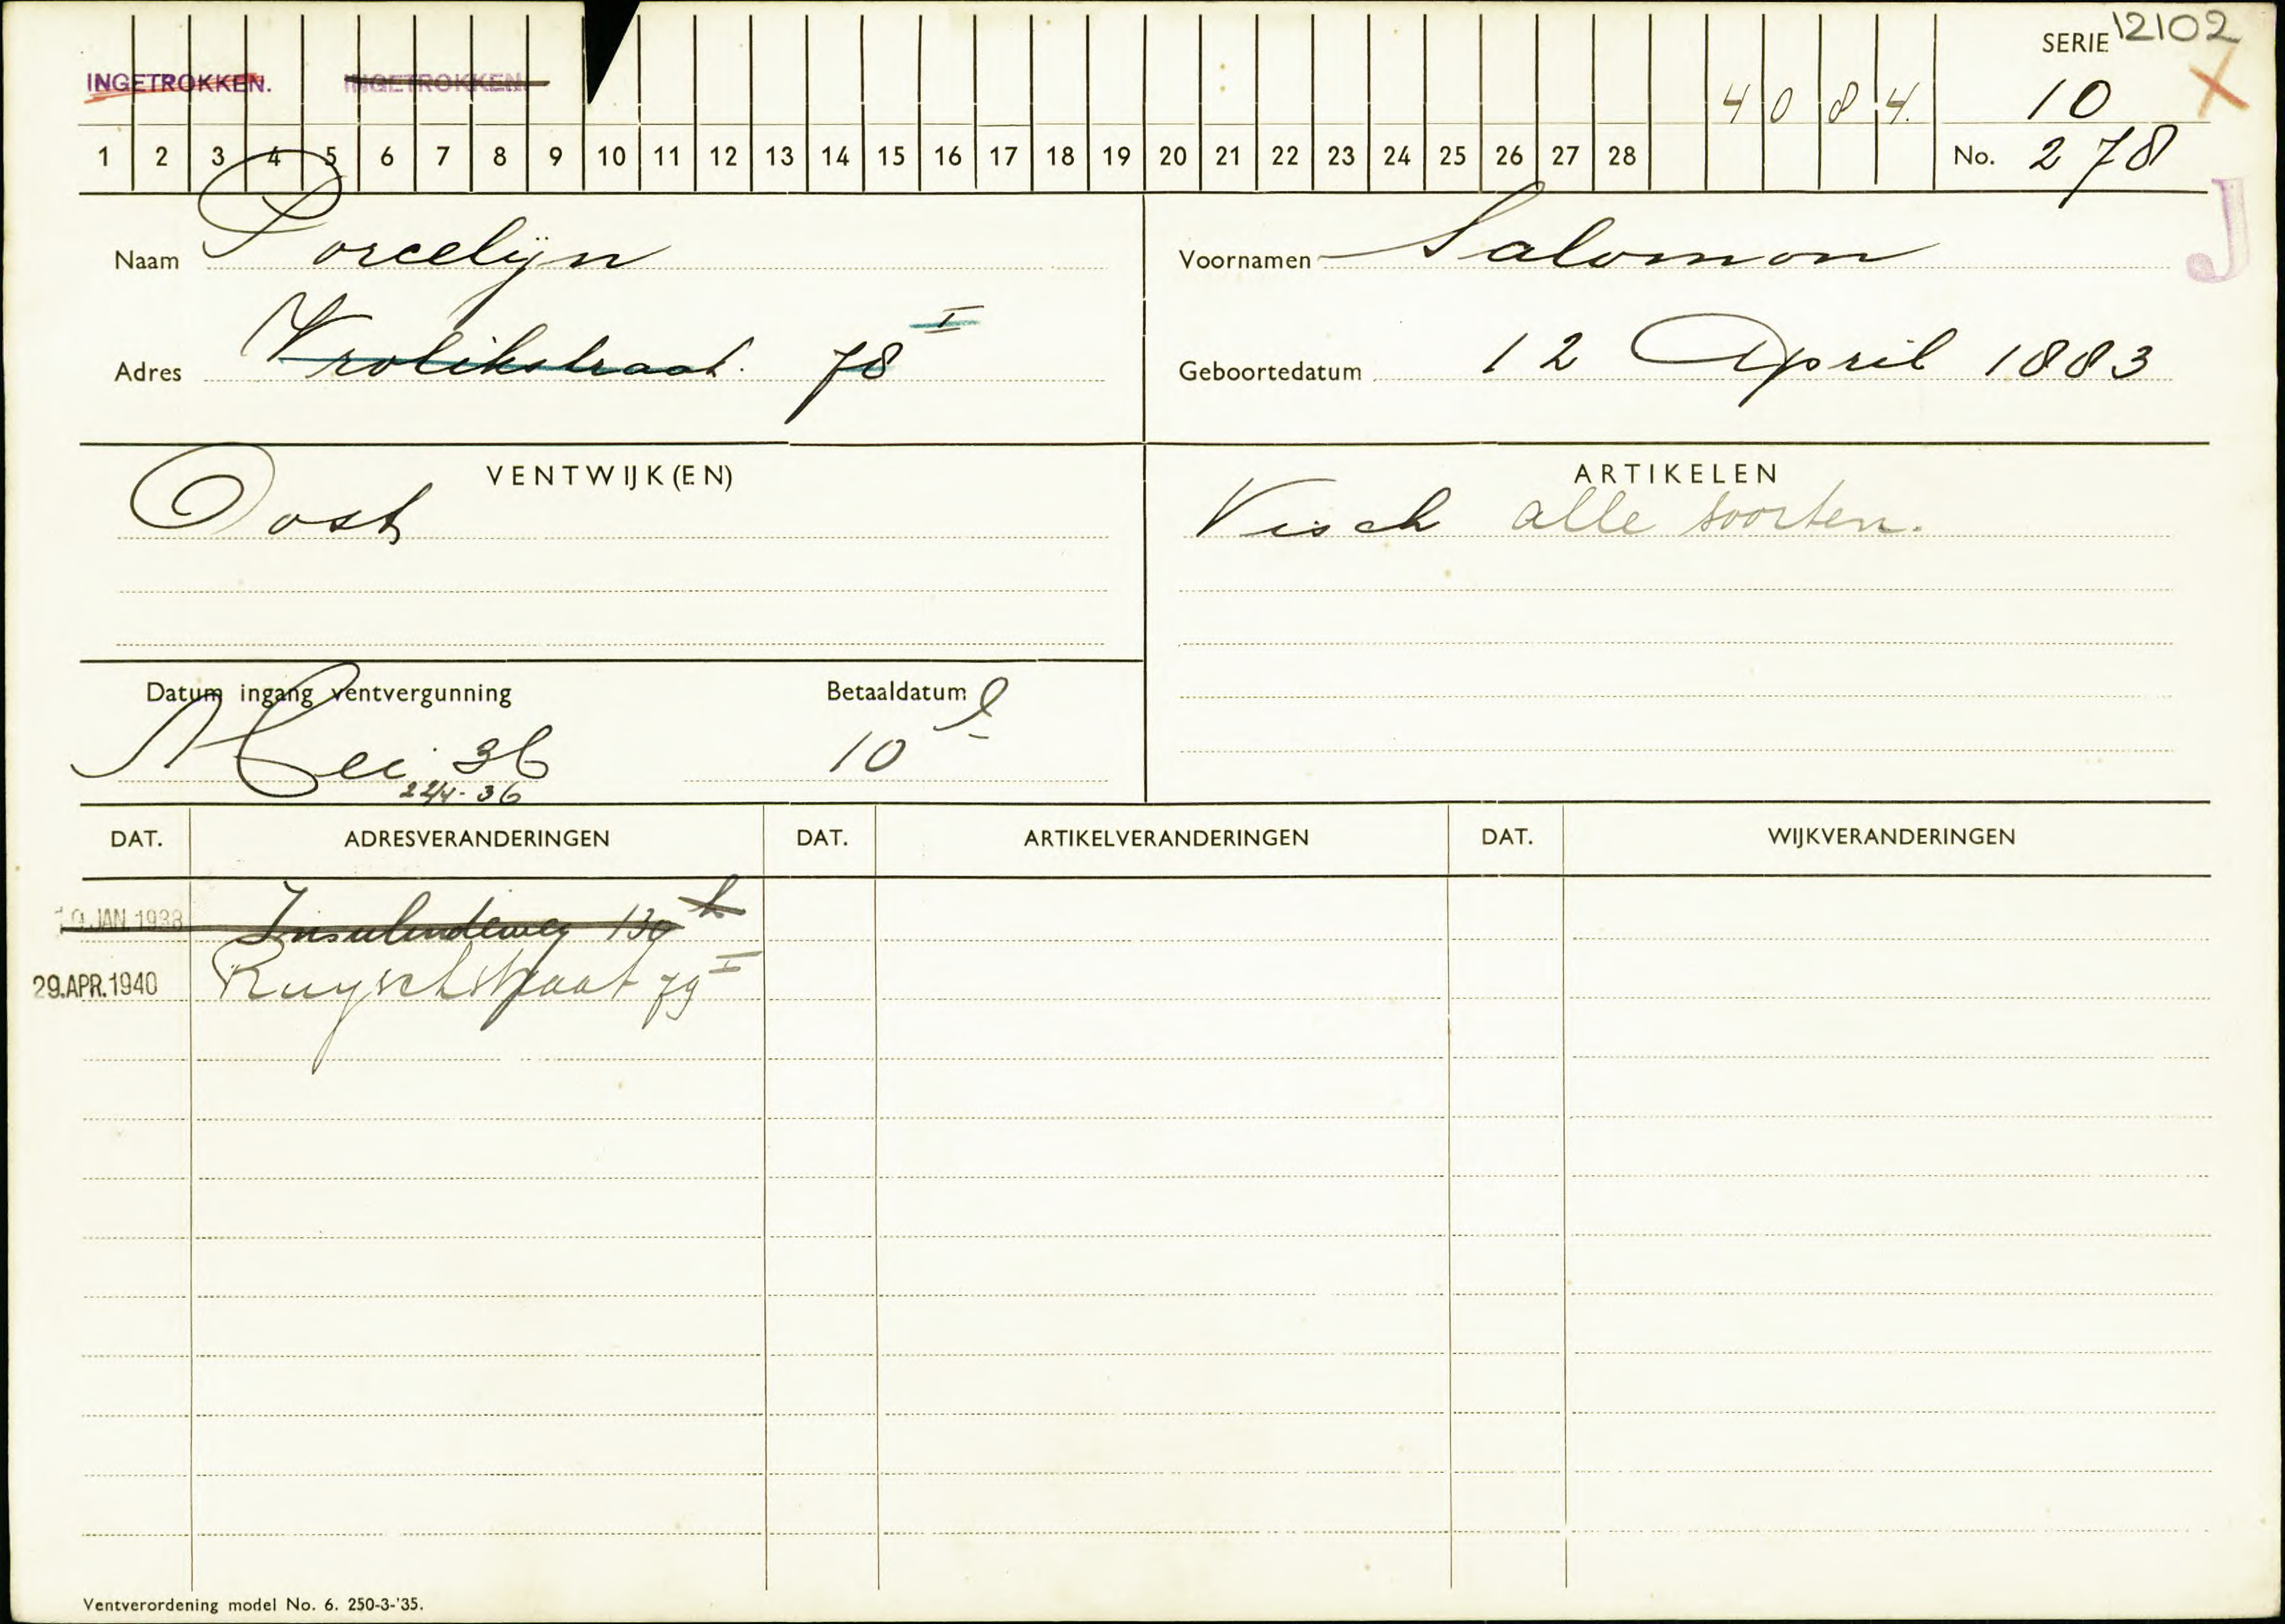 SERIE 12102
INGETROKKEN. INGETROKKEN.
4 0 8 4. 10 X
1 2 3 4 5 6 7 8 9 10 11 12 13 14 15 16 17 18 19 20 21 22 23 24 25 26 27 28 No. 278
J
Naam Porcelijn Voornamen Salomon
Adres Vrolikstraat. 78 I Geboortedatum 12 April 1883
VENTWIJK(EN) ARTIKELEN
Oost Visch alle soorten.
Datum ingang ventvergunning Betaaldatum
Mei 36 10 e
22/4-36
DAT. ADRESVERANDERINGEN DAT. ARTIKELVERANDERINGEN DAT. WIJKVERANDERINGEN
19 JAN 1938 Insulindeweg 130 h
29.APR.1940 Ruyschstraat 79 I
Ventverordening model No. 6. 250-3-'35.